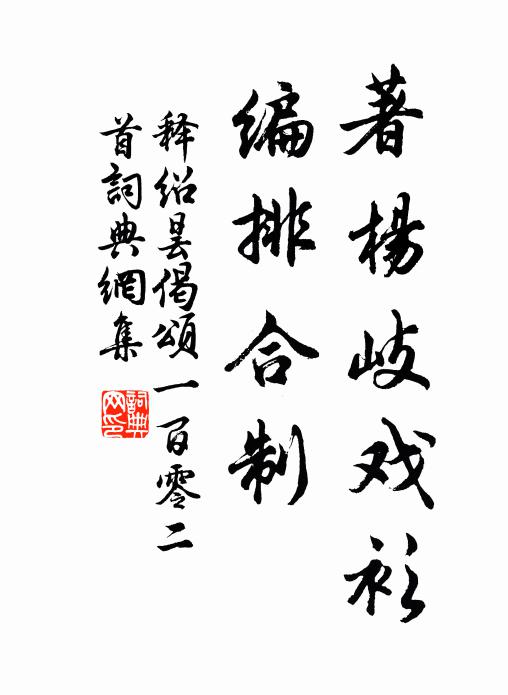 著楊岐戏衫
编排合制
释绍昙偈颂一百零二
首詞典網集
詞典网印